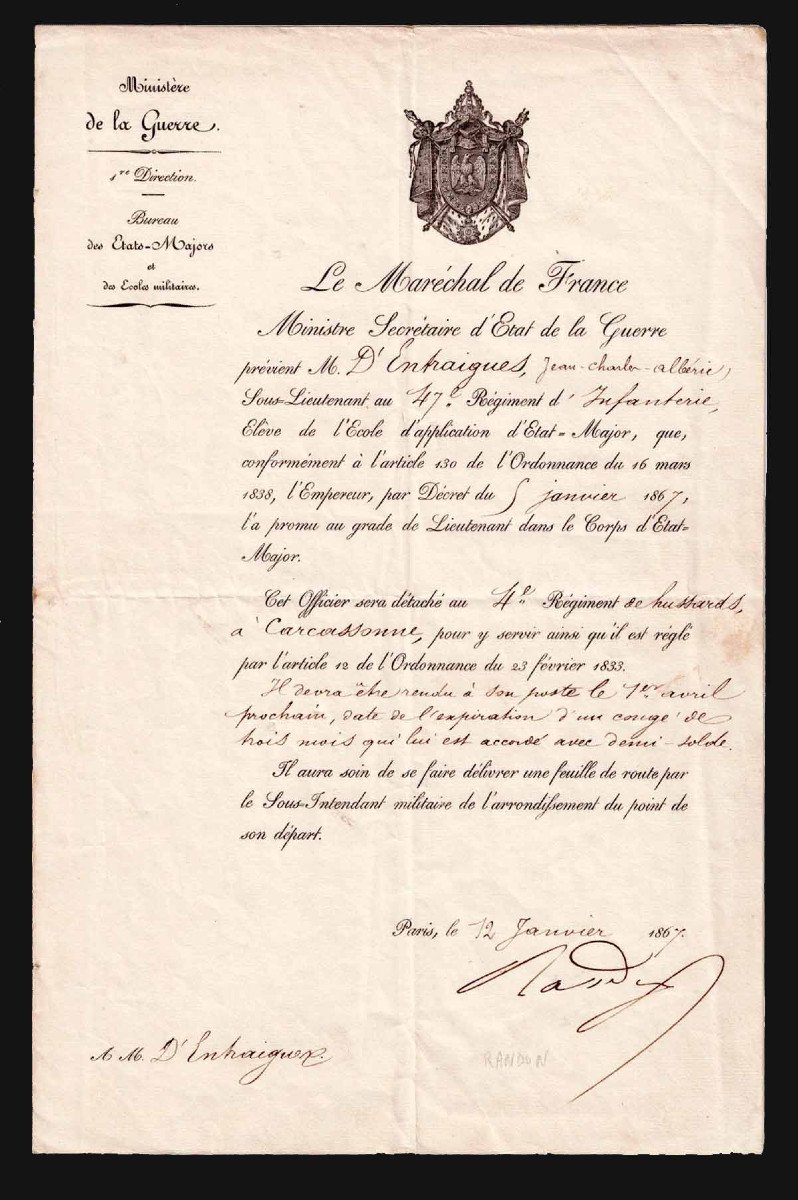 Ministère
de la Guerre.
1re Direction.
Bureau
des Etats-Majors
et
des Ecoles militaires.
Le Maréchal de France
Ministre Secrétaire d'Etat de la Guerre
prévient M. D'Entraigues, Jean-charles-albéric,
Sous-Lieutenant au 47e Régiment d'Infanterie,
Elève de l'Ecole d'application d'Etat-Major, que,
conformément à l'article 130 de l'Ordonnance du 16 mars
1838, l'Empereur, par Décret du 5 janvier 1867,
l'a promu au grade de Lieutenant dans le Corps d'Etat-
Major.
Cet Officier sera détaché au 4e Régiment de hussards,
à Carcassonne, pour y servir ainsi qu'il est réglé
par l'article 12 de l'Ordonnance du 23 février 1833.
Il devra être rendu à son poste le 1er avril
prochain, date de l'expiration d'un congé de
trois mois qui lui est accordé avec demi-solde.
Il aura soin de se faire délivrer une feuille de route par
le Sous-Intendant militaire de l'arrondissement du point de
son départ.
Paris, le 12 Janvier 1867.
Randon
A M. D'Entraigues.
RANDON